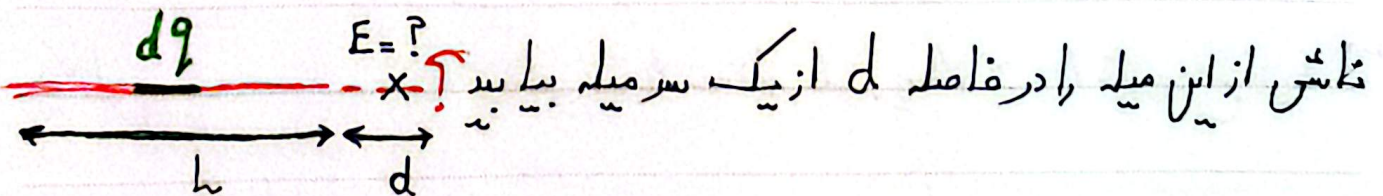 dq
E=?
ناشی از این میله را در فاصله d از یک سر میله بیا بید
x ?
L d